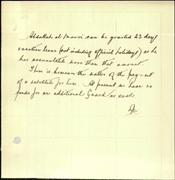 Abdullah al-Inawi can be granted 23 days
vacation leave (not including official holidays) as he
has accumulated more than that amount.
There is however the matter of the pay-ment
of a substitute for him. At present we have no
funds for an additional Guard, as such.